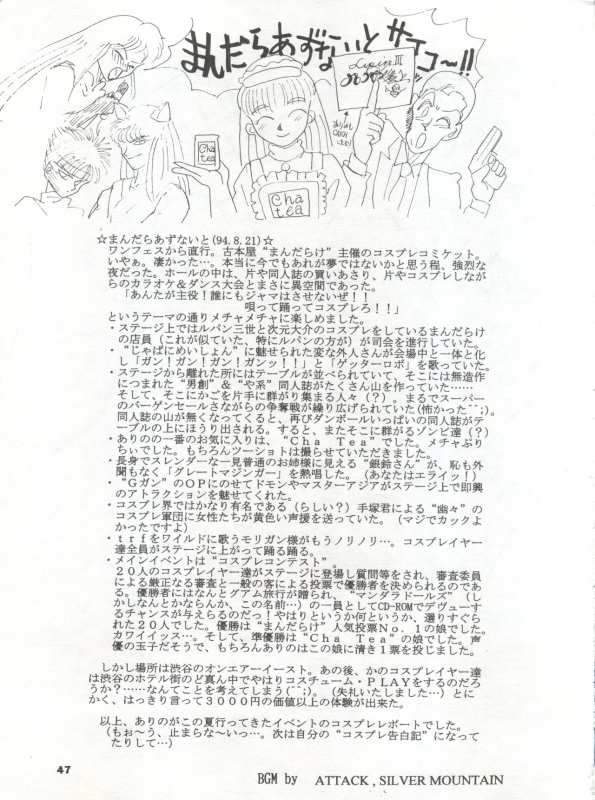 まんだらあずないと サイコ〜!!
Lupin III
Cha
tea
Cha
tea
☆まんだらあずないと(94.8.21)☆
ワンフェスから直行。古本屋“まんだらけ”主催のコスプレコミケット。
いやぁ。凄かった…。本当に今でもあれが夢ではないかと思う程、強烈な
夜だった。ホールの中は、片や同人誌の買いあさり、片やコスプレしなが
らのカラオケ&ダンス大会とまさに異空間であった。
「あんたが主役!誰にもジャマはさせないぜ!!
唄って踊ってコスプレろ!!」
というテーマの通りメチャメチャに楽しめました。
・ステージ上ではルパン三世と次元大介のコスプレをしているまんだらけ
の店員(これが似ていた、特にルパンの方が)が司会を進行していた。
・“じゃぱにめいしょん”に魅せられた変な外人さんが会場中と一体と化
し「ガン!ガン!ガン!ガンッ!!」と「ゲッターコボ」を歌っていた。
・ステージから離れた所にはテーブルが並べられていて、そこには無造作
につまれた“男創”&“や系”同人誌がたくさん山を作っていた……
そして、そこにかごを片手に群がり集まる人々(?)。まるでスーパー
のバーゲンセールさながらの争奪戦が繰り広げられていた(怖かった^^;)。
同人誌の山が無くなってくると、再びダンボールいっぱいの同人誌がテ
ーブルの上にほうり出される。すると、またそこに群がるゾンビ達(?)
・ありのの一番のお気に入りは、“Cha Tea”でした。メチャぷり
ちぃでした。もちろんツーショトは撮らせていただきました。
・長身でスレンダーな一見普通のお姉様に見える“銀鈴さん”が、恥も外
聞もなく「グレートマジンガー」を熱唱した。(あなたはエライッ!)
・“Gガン”のOPにのせてドモンやマスターアジアがステージ上で即興
のアトラクションを魅せてくれた。
・コスプレ界ではかなり有名である(らしい?)手塚君による“幽々”の
コスプレ軍団に女性たちが黄色い声援を送っていた。(マジでカックよ
かったですよ)
・trfをワイルドに歌うモリガン様がもうノリノリ…。コスプレイヤー
達全員がステージに上がって踊る踊る。
・メインイベントは“コスプレコンテスト”。
20人のコスプレイヤー達がステージに登場し質問等をされ、審査委員
による厳正なる審査と一般の客による投票で優勝者を決められるのであ
る。優勝者にはなんとグアム旅行が贈られ、“マンダラドールズ”(し
かしなんとかならんか、この名前…)の一員としてCD-ROMでデヴューす
るチャンスが与えらるのだっ!やはりというか何というか、選りすぐら
れた20人でした。優勝は“まんだらけ”人気投票No.1の娘でした。
カワイイッス…。そして、準優勝は“Cha Tea”の娘でした。声
優の玉子だそうで、もちろんありのはこの娘に清き1票を投じました。
しかし場所は渋谷のオンエアーイースト。あの後、かのコスプレイヤー達
は渋谷のホテル街のど真ん中でやはりコスチューム・PLAYをするのだろ
うか?……なんてことを考えてしまう(^^;)。(失礼いたしました…)とに
かく、はっきり言って3000円の価値以上の体験が出来た。
以上、ありのがこの夏行ってきたイベントのコスプレレポートでした。
(もぉ〜う、止まらな〜いっ…。次は自分の“コスプレ告白記”になって
たりして…)
47
BGM by ATTACK , SILVER MOUNTAIN